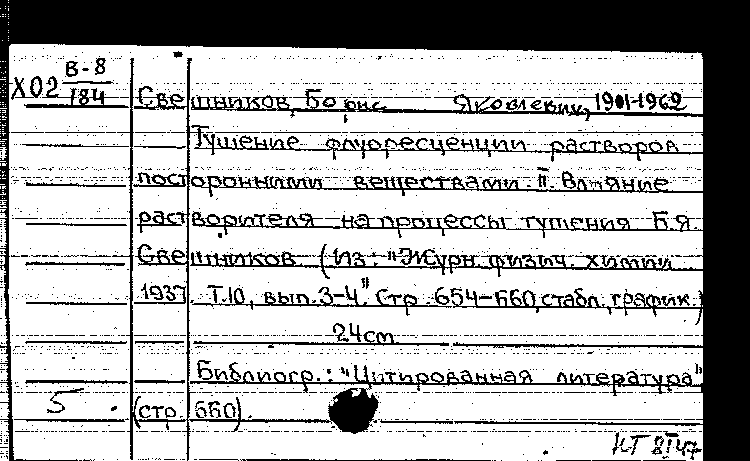 Х02 В-8/184 Свешников, Борис Яковлевич, 1901-1962
Тушение флуоресценции растворов
посторонними веществами. II. Влияние
растворителя на процессы тушения Б.Я.
Свешников (Из: "Журн. физич. химии
1937. Т.10, вып. 3-4." Стр. 654-660, с табл., график.)
24см
Библиогр.: "Цитированная литература"
5 (стр. 660).